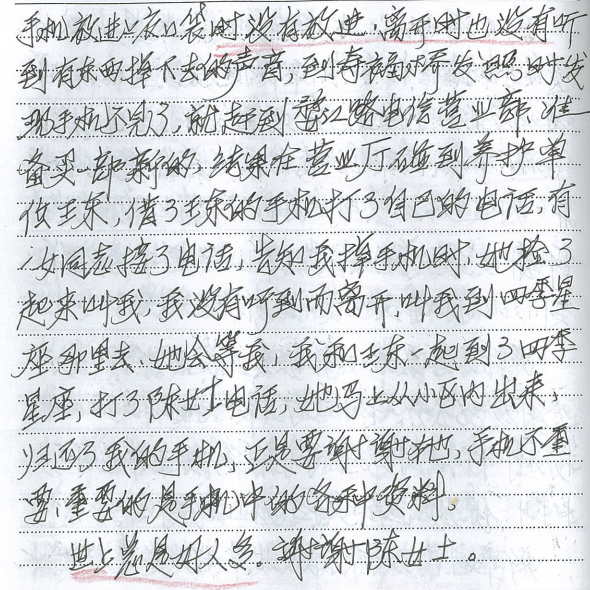 手机放进上衣口袋时没有放进,离开时也没有听
到有东西掉下去的声音,到寿福 发照时发
现手机不见了,就赶到 江路电信营业部准
备买一部新的,结果在营业厅碰到养护单
位王东,借了王东的手机打了自己的电话,有
一女同志接了电话,告知我掉手机时,她捡了
起来叫我,我没有听到而离开,叫我到四季星
座那里去,她会等我,我和王东一起到了四季
星座,打了陈女士电话,她马上从小区内出来,
归还了我的手机,正是要谢谢她,手机不重
要,重要的是手机中的各种资料。
世上总是好人多。谢谢陈女士。